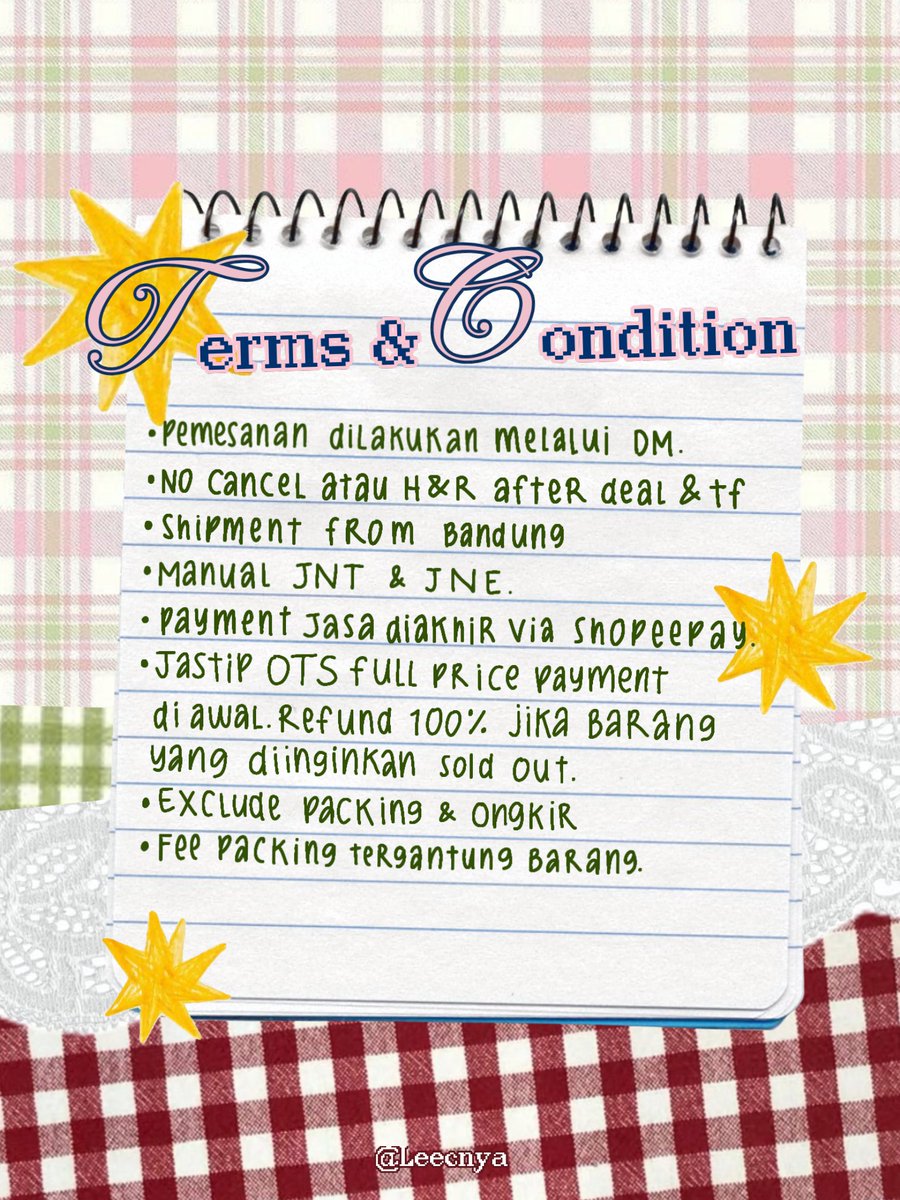 Terms & Condition
•Pemesanan dilakukan melalui DM.
•No cancel atau H&R after deal & tf
•Shipment from Bandung
•Manual JNT & JNE.
•Payment jasa diakhir via Shopeepay.
•Jastip OTS full price payment
di awal. Refund 100% jika barang
yang diinginkan sold out.
•Exclude packing & ongkir
•Fee packing tergantung barang.
@Leecnya